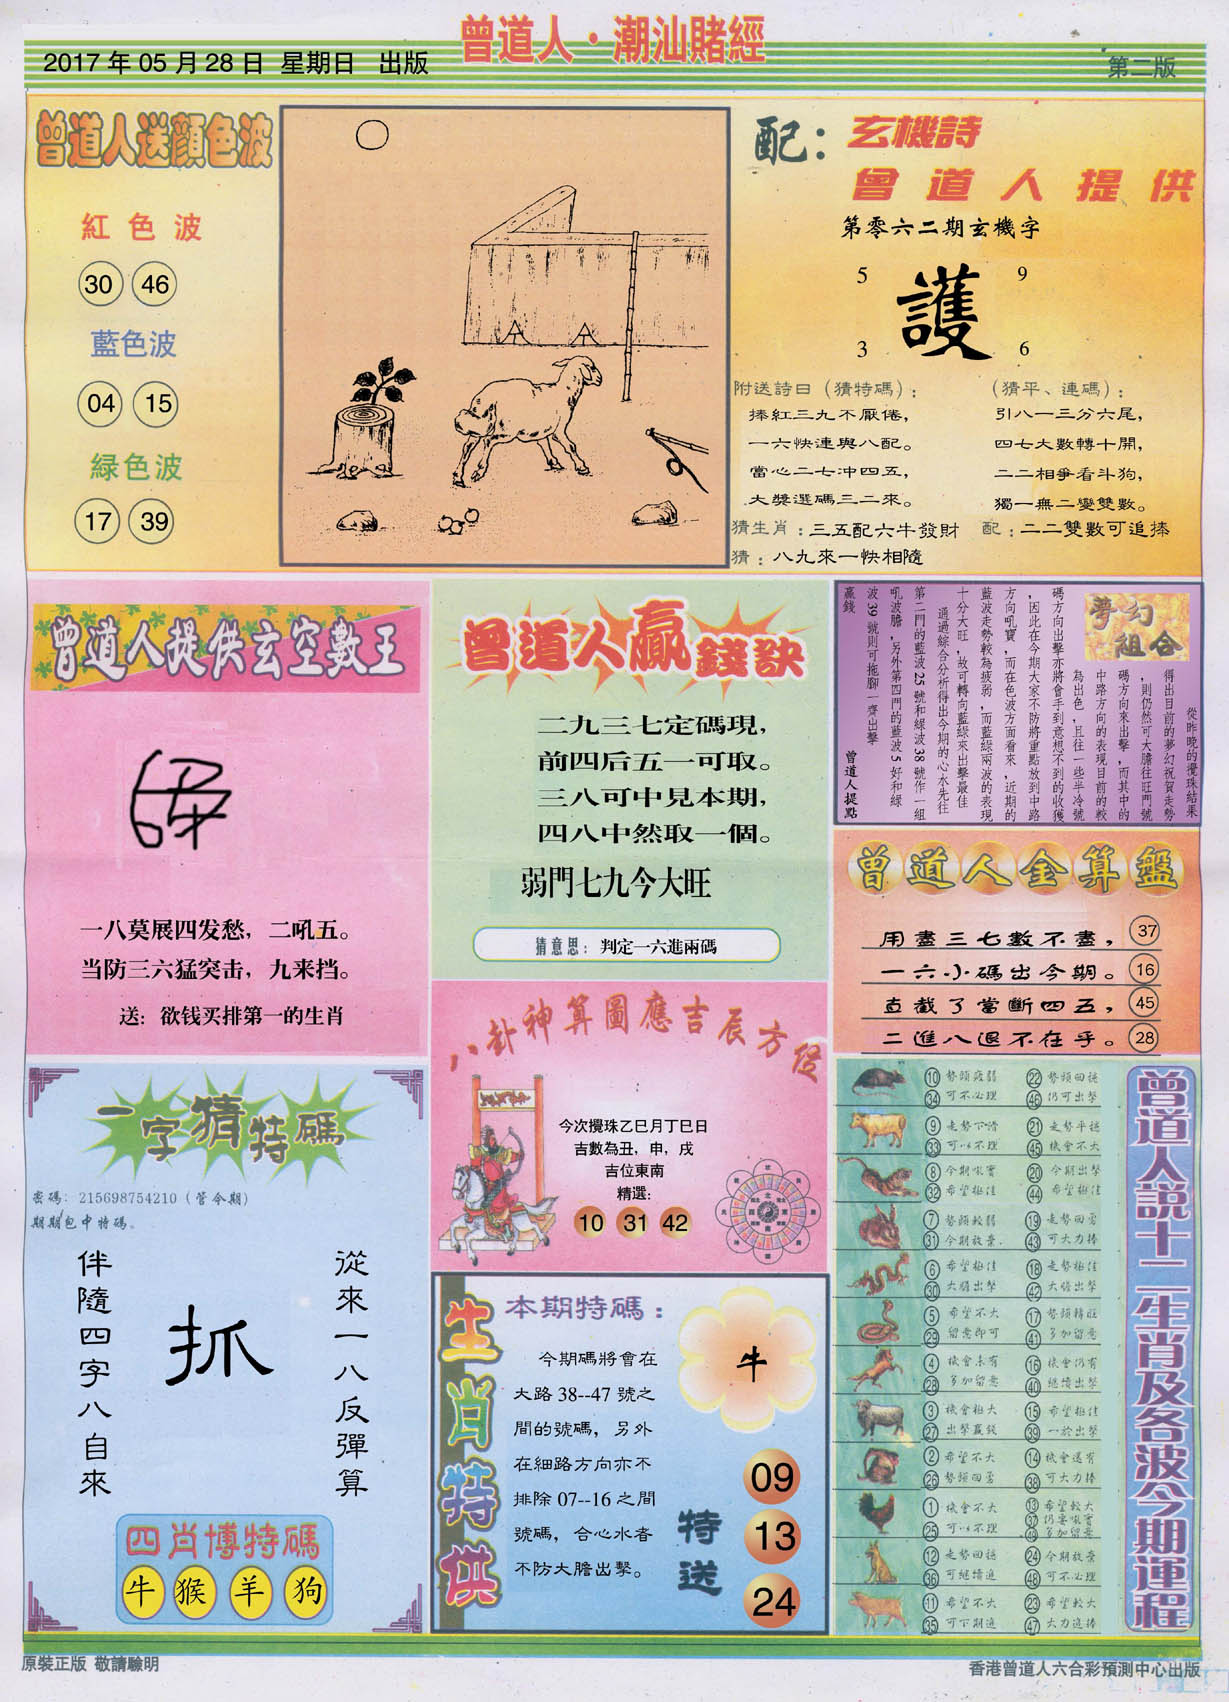 曾道人·潮汕賭經
2017年05月28日 星期日 出版
第二版
曾道人送顏色波
紅色波
30 46
藍色波
04 15
緑色波
17 39
配：玄機詩
曾道人提供
第零六二期玄機字
5 9
護
3 6
附送詩曰（猜特碼）：
捧紅三九不厭倦，
一六快連與八配。
當心二七冲四五，
大獎選碼三二來。
（猜平、連碼）：
引八一三分六尾，
四七大數轉十開，
二二相爭看斗狗，
獨一無二變雙數。
猜生肖：三五配六牛發財
配：二二雙數可追捧
猜：八九來一快相隨
曾道人提供玄空數王
一八莫展四发愁，二吼五。
当防三六猛突击，九来挡。
送：欲钱买排第一的生肖
曾道人贏錢訣
二九三七定碼現，
前四后五一可取。
三八可中見本期，
四八中然取一個。
弱門七九今大旺
猜意思：判定一六進兩碼
夢幻
組合
從昨晚的攪珠結果
得出目前的夢幻祝賀走勢
，則仍然可大膽往旺門號
碼方向來出擊，而其中的
中路方向的表現目前的較
為出色，且往一些半冷號
碼方向出擊亦將會手到意想不到的收獲
，因此在今期大家不防將重點放到中路
方向吼寶，而在色波方面看來，近期的
藍波走勢較為疲弱，而藍綠兩波的表現
十分大旺，故可轉向藍綠來出擊最佳
通過綜合分析得出今期的心水先往
第二門的藍波25號和綠波38號作一組
吼波膽，另外第四門的藍波5好和綠
波39號則可拖腳一齊出擊
贏錢
曾道人提點
曾道人金算盤
用盡三七數不盡， 37
一六小碼出今期。 16
直截了當斷四五， 45
二進八退不在乎。 28
八卦神算圖應吉辰方位
今次攪珠乙巳月丁巳日
吉數為丑，申，戌
吉位東南
精選：
10 31 42
一字猜特碼
密碼：215698754210（管今期）
期期包中特碼。
從來一八反彈算
抓
伴隨四字八自來
四肖博特碼
牛 猴 羊 狗
生肖特供
本期特碼：
今期碼將會在
大路38--47號之
間的號碼，另外
在細路方向亦不
排除07--16之間
號碼，合心水者
不防大膽出擊。
牛
特送
09
13
24
曾道人説十二生肖及各波今期運程
10 勢頭疲弱 22 勢頭回穩
34 可不必理 46 仍可出擊
9 走勢下滑 21 走勢平穩
33 可以不理 45 機會不大
8 今期吼寶 20 今期出擊
32 希望極佳 44 希望極佳
7 勢頭較弱 19 走勢回勇
31 今期放棄. 43 可大力捧
6 希望極佳 18 走勢極佳
30 大膽出擊 42 大膽出擊
5 希望不大 17 勢頭轉旺
29 留意即可 41 多加留意
4 機會未有 16 機會仍有
28 多加留意 40 繼續出擊
3 機會極大 15 希望極佳
27 出擊贏錢 39 一於出擊
2 希望不大 14 機會還有
26 勢頭回勇 38 可大力捧
1 機會不大 13 希望較大
25 可以不理 37 仍要吼寶
49 多加留意
12 走勢回穩 24 今期放棄
36 可繼續追 48 可不必理
11 希望不大 23 希望較大
35 可下期追 47 大力追捧
原裝正版 敬請驗明
香港曾道人六合彩預測中心出版